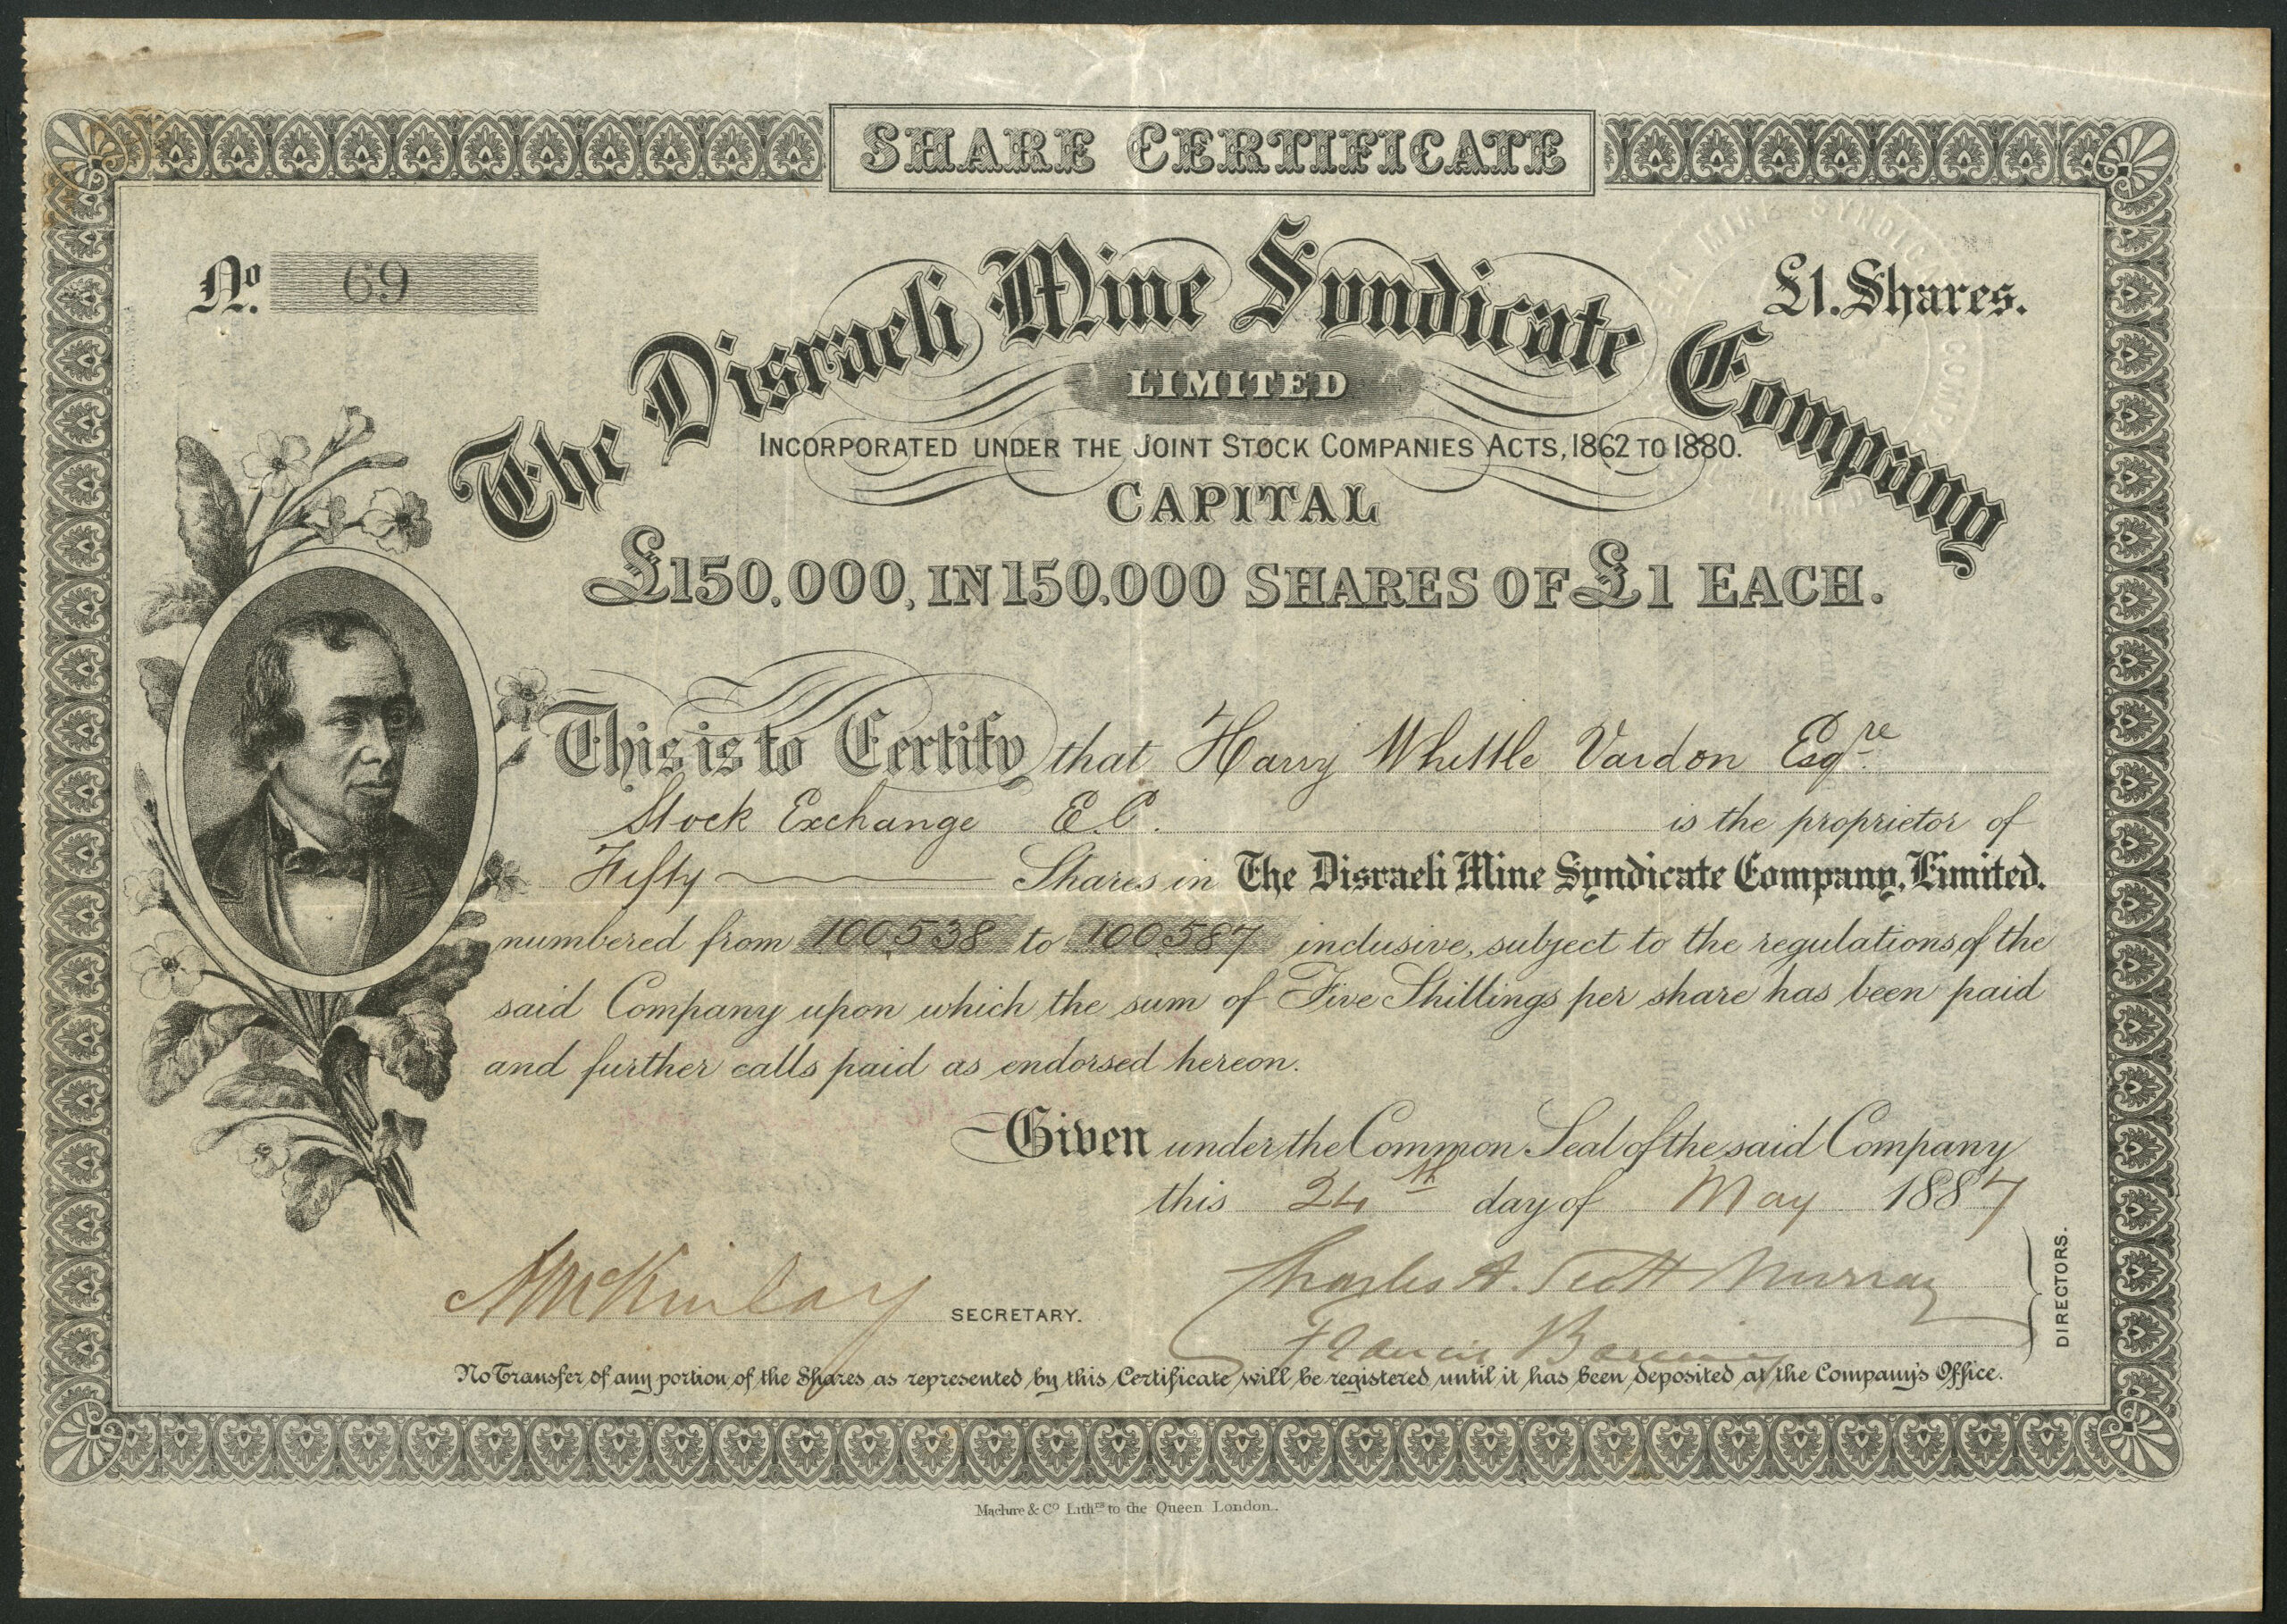 SHARE CERTIFICATE
No. 69
£1. Shares.
The Disraeli Mine Syndicate Company
LIMITED
INCORPORATED UNDER THE JOINT STOCK COMPANIES ACTS, 1862 TO 1880.
CAPITAL
£150,000, IN 150,000 SHARES OF £1 EACH.
This is to Certify that Harry Whittle Vardon Esqre
Stock Exchange E.C. is the proprietor of
Fifty Shares in The Disraeli Mine Syndicate Company, Limited.
numbered from 100,538 to 100,587 inclusive, subject to the regulations of the
said Company upon which the sum of Five Shillings per share has been paid
and further calls paid as endorsed hereon.
Given under the Common Seal of the said Company
this 24th day of May 1887
McKinlay SECRETARY.
Charles A. Scott Murray
Francis
DIRECTORS.
No Transfer of any portion of the Shares as represented by this Certificate will be registered until it has been deposited at the Company's Office.
Maclure & Co. Lithrs. to the Queen London.
MINE SYNDICATE COMP